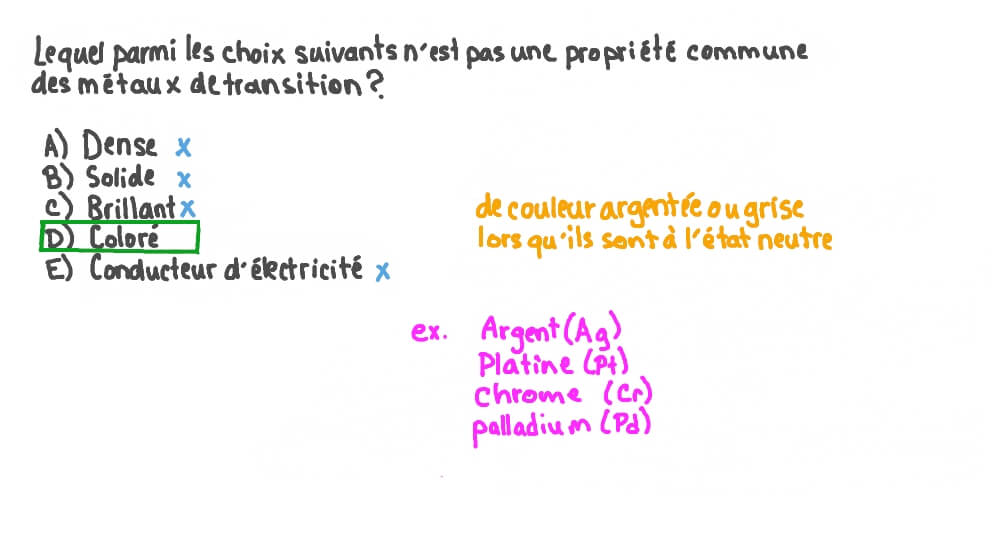 Lequel parmi les choix suivants n'est pas une propriété commune
des métaux de transition ?
A) Dense x
B) Solide x
C) Brillant x
D) Coloré
E) Conducteur d'électricité x
de couleur argentée ou grise
lorsqu'ils sont à l'état neutre
ex. Argent (Ag)
Platine (Pt)
Chrome (Cr)
palladium (Pd)